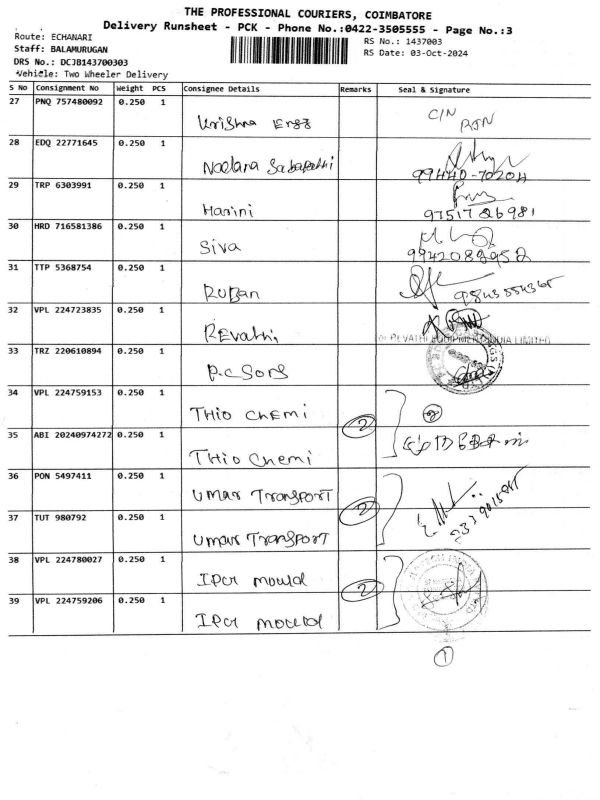 THE PROFESSIONAL COURIERS, COIMBATORE
Delivery Runsheet - PCK - Phone No.:0422-3505555 - Page No.:3
Route: ECHANARI
RS No.: 1437003
Staff: BALAMURUGAN
RS Date: 03-Oct-2024
DRS No.: DCJB143700303
Vehicle: Two Wheeler Delivery
S No Consignment No Weight PCS Consignee Details Remarks Seal & Signature
27 PNQ 757480092 0.250 1
Krishna Engg
28 EDQ 22771645 0.250 1
99440-70204
29 TRP 6303991 0.250 1
Harini
30 HRD 716581386 0.250 1
Siva
31 TTP 5368754 0.250 1
Ruban
32 VPL 224723835 0.250 1
REvathi
REVATHI EQUIPMENT INDIA LIMITED
33 TRZ 220610894 0.250 1
P.C Sons
34 VPL 224759153 0.250 1
THio CHEMi 2
35 ABI 20240974272 0.250 1
THio Chemi
36 PON 5497411 0.250 1
Umar TranSPorT 2
37 TUT 980792 0.250 1
Umar TranSPorT
38 VPL 224780027 0.250 1
IPCr mould 2
39 VPL 224759206 0.250 1
IPCr mould
1